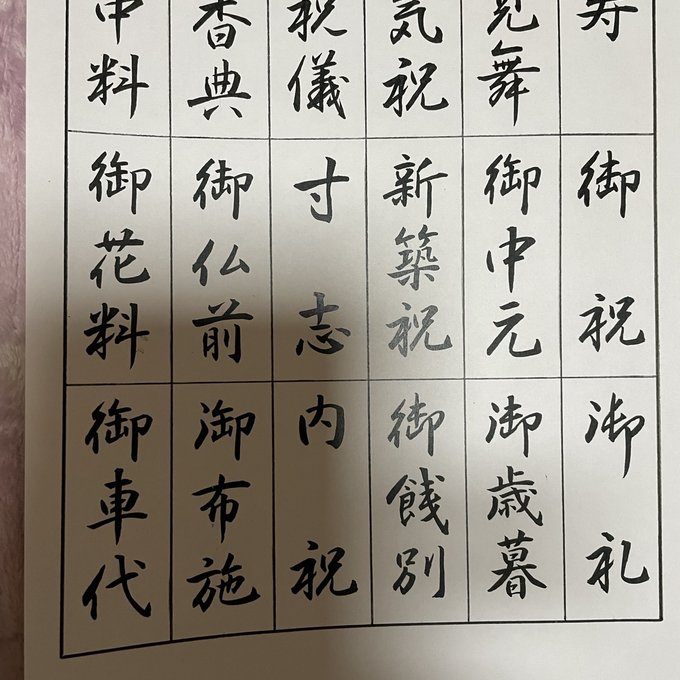 寿
見舞
気祝
祝儀
香典
料
御祝
御中元
新築祝
寸志
御仏前
御花料
御礼
御歳暮
御餞別
内祝
御布施
御車代